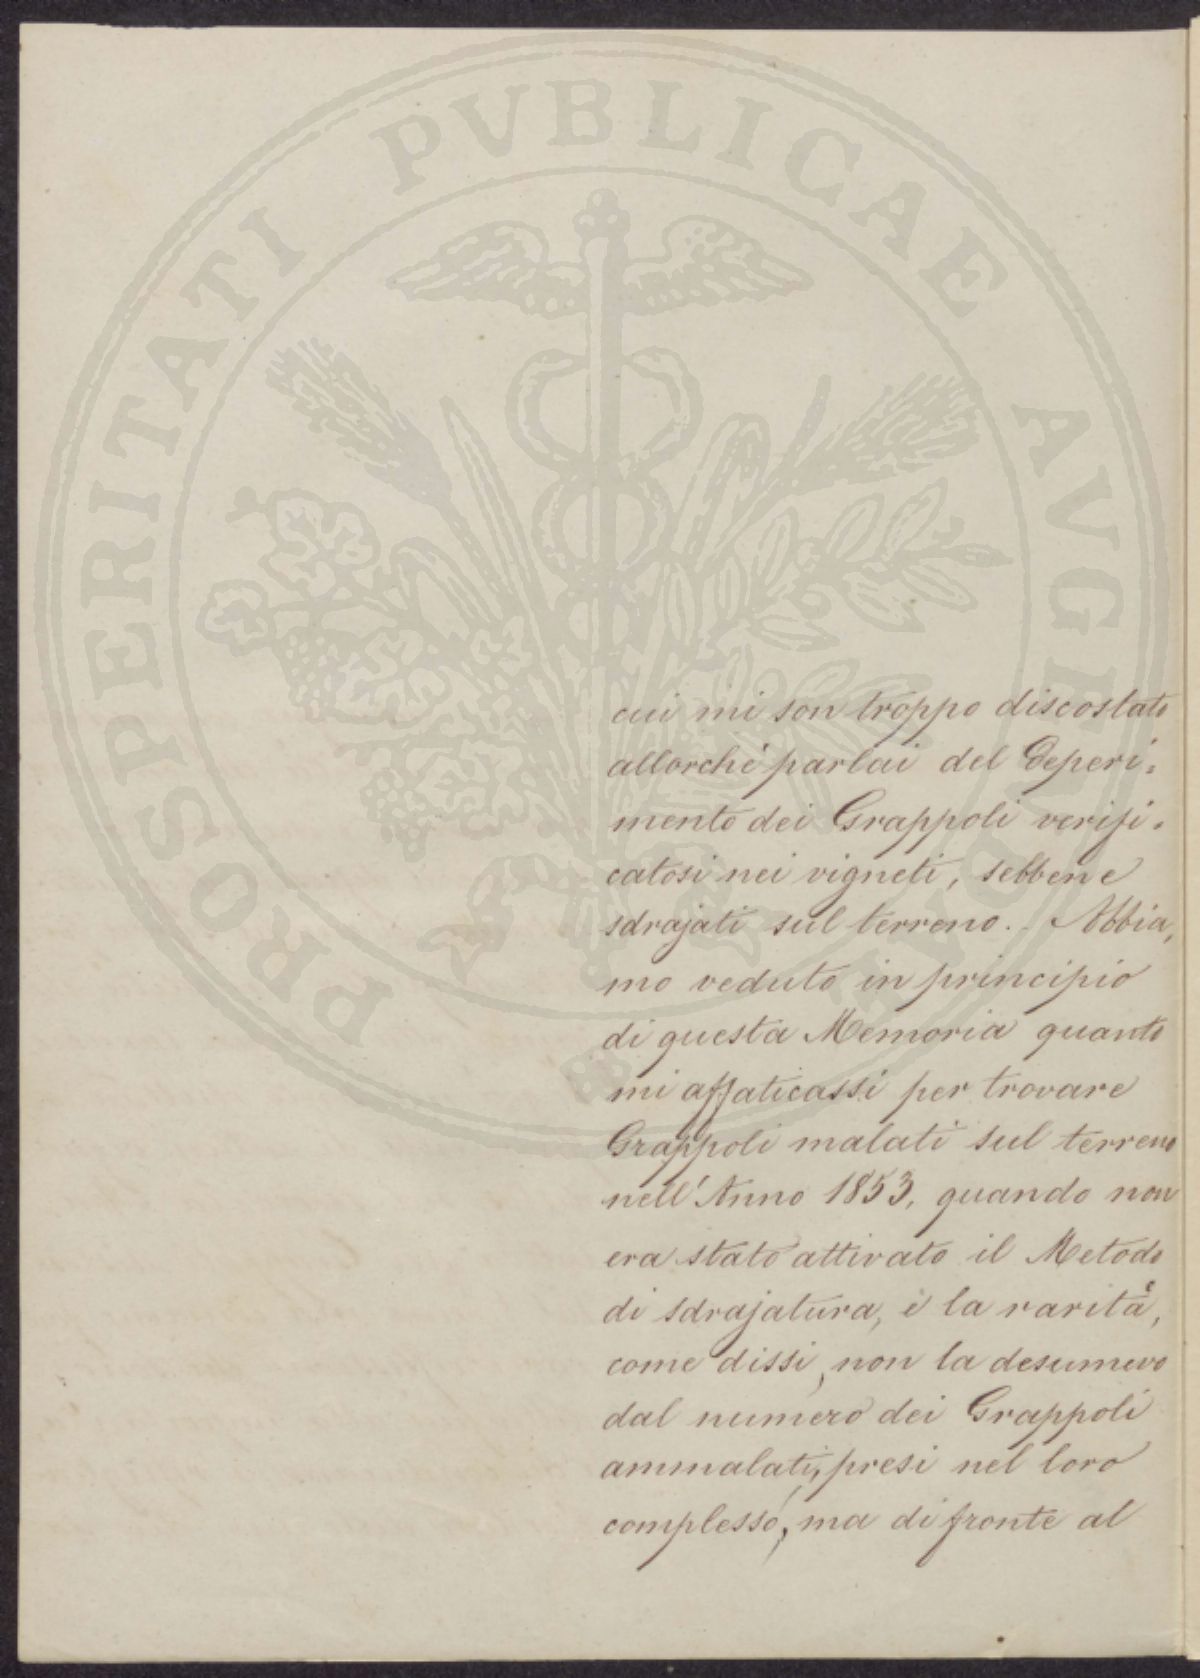 PROSPERITATI PVBLICAE AVGENDAE
cui mi son troppo discostato
allorchè parlai del Deperi=
mento dei Grappoli verifi=
catosi nei vigneti, sebbene
sdrajati sul terreno. Abbia=
mo veduto in principio
di questa Memoria quanto
mi affaticassi per trovare
Grappoli malati sul terreno
nell'Anno 1853, quando non
era stato attivato il Metodo
di sdrajatura, è la rarità,
come dissi, non la desumevo
dal numero dei Grappoli
ammalati, presi nel loro
complesso, ma di fronte al